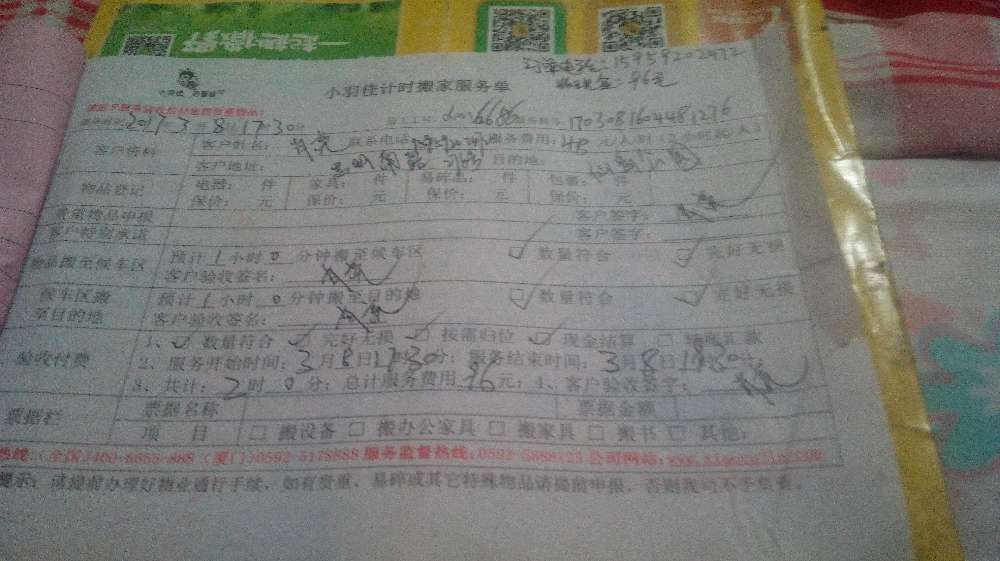 一起把徐野
订单电话:15959202472
收现金:96元
小羽佳计时搬家服务单
2017 3月8日17:30分 员工工号: xm6686 服务单号: 1703081604481276
客户资料 客户姓名: 联系电话: 服务费用:48元/人·时(2小时起/人)
客户地址: 目的地:
物品登记 电器: 件 家具: 件 易碎品: 件 包裹: 件
保价: 元 保价: 元 保价: 元 保价: 元
贵重物品申报 客户签字:
客户特别承诺 客户签字:
物品搬至候车区 预计1小时0分钟搬至候车区 数量符合 完好无损
客户验收签名:
候车区搬至目的地 预计1小时0分钟搬至目的地 数量符合 完好无损
客户验收签名:
验收付费 1、数量符合 完好无损 按需归位 现金结算
2、服务开始时间:3月8日17时30分;服务结束时间:3月8日19时30分;
3、共计:2时0分;总计服务费用96元;4、客户验收签字:
票据栏 票据名称 票据金额
项目 搬设备 搬办公家具 搬家具 搬书 其他:
热线:(全国)400-8855-888 (厦门)0592-5178888 服务监督热线:0592-5888123 公司网站:
提示:请提前办理好物业通行手续,如有贵重、易碎或其它特殊物品请提前申报,否则我司不予负责。